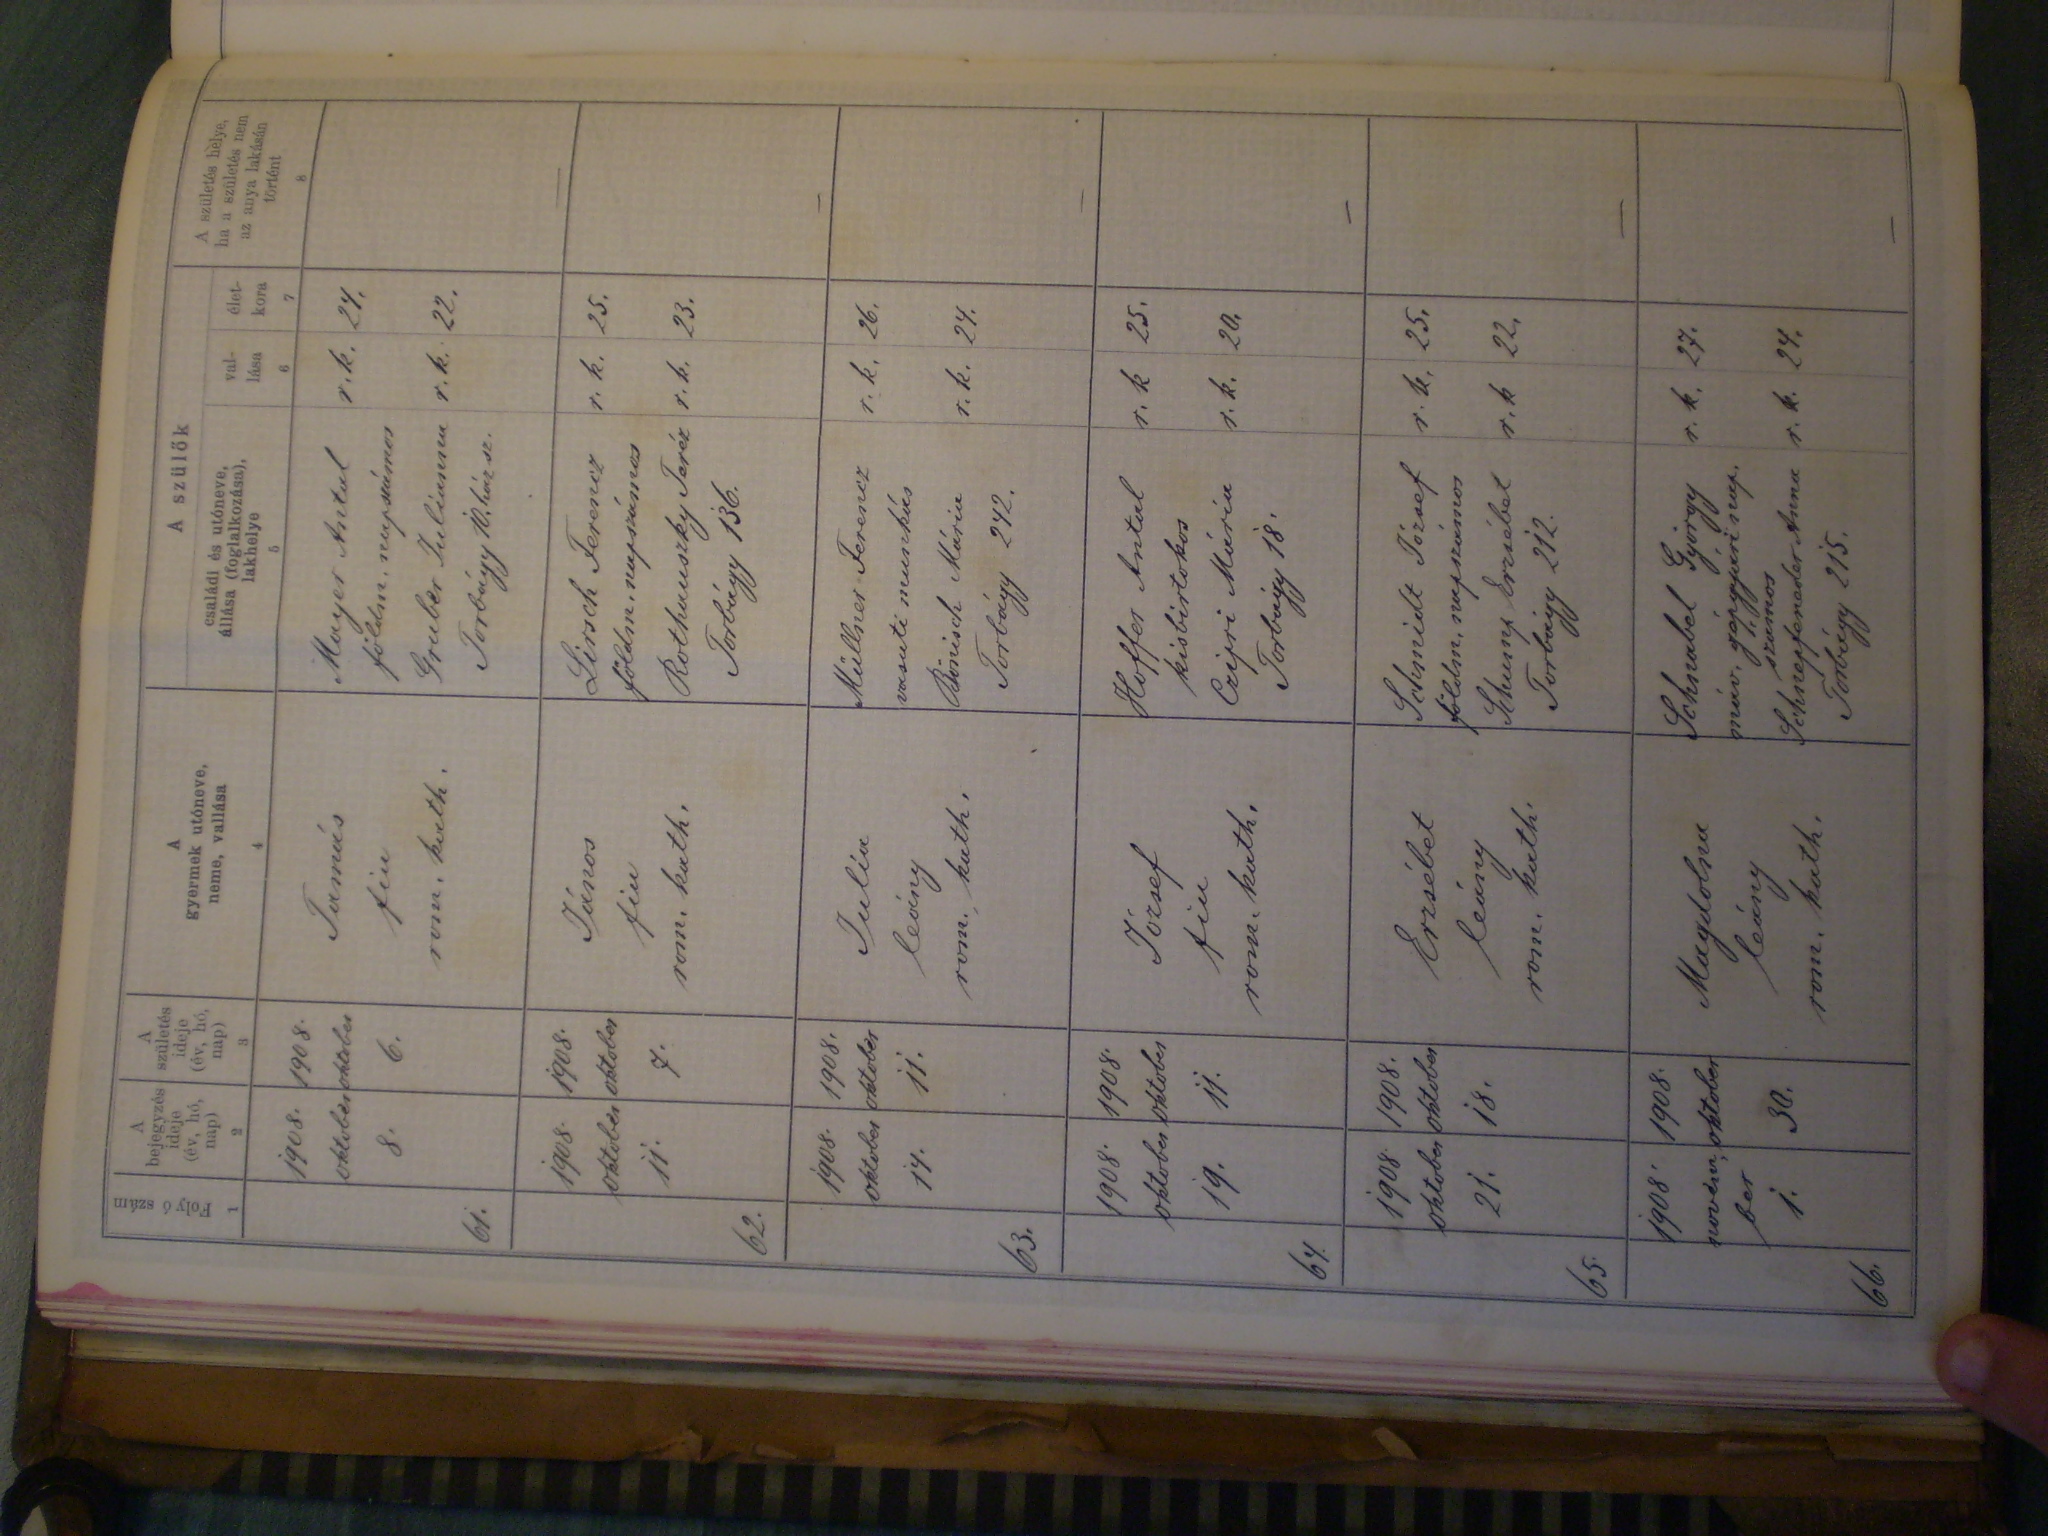 Folyó szám
1
A bejegyzés ideje (év, hó, nap)
2
A születés ideje (év, hó, nap)
3
A gyermek utóneve, neme, vallása
4
A szülők
családi és utóneve, állása (foglalkozása), lakhelye
5
vallása
6
életkora
7
A születés helye, ha a születés nem az anya lakásán történt
8
61.
1908. október 8.
1908. október 6.
Tamás
fiu
rom. kath.
Mayer Antal r. k. 24.
földm. napszámos
Gruber Julianna r. k. 22.
Torbágy 10. házsz.
—
62.
1908. október 11.
1908. október 7.
János
fiu
rom. kath.
Lirsch Ferencz r. k. 25.
földm. napszámos
Rothauszky Teréz r. k. 23.
Torbágy 136.
—
63.
1908. október 14.
1908. október 11.
Julia
leány
rom. kath.
Müllner Ferencz r. k. 26.
vasuti munkás
Bönisch Mária r. k. 24.
Torbágy 242.
—
64.
1908. október 19.
1908. október 11.
József
fiu
rom. kath.
Hoffer Antal r. k 25.
kisbirtokos
Czipri Mária r. k. 20.
Torbágy 18.
—
65.
1908. október 21.
1908. október 18.
Erzsébet
leány
rom. kath.
Schmidt József r. k. 25.
földm. napszámos
Schump Erzsébet r. k 22.
Torbágy 212.
—
66.
1908. november 1.
1908. október 30.
Magdolna
leány
rom. kath.
Schnabel György r. k. 27.
máv. gépgyári nap.
számos
Anna r. k. 24.
Torbágy 215.
—